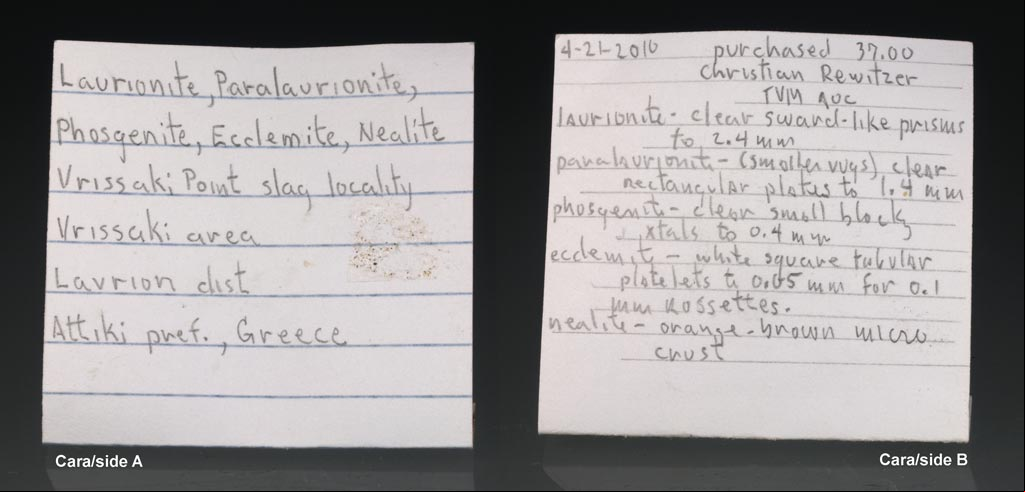 Laurionite, Paralaurionite,
Phosgenite, Ecclemite, Nealite
Vrissaki Point slag locality
Vrissaki area
Lavrion dist
Attiki pref., Greece
Cara/side A
4-21-2010 purchased 37.00
Christian Rewitzer
TVM AUC
laurionite - clear sward-like prisms
to 2.4 mm
paralaurionit - (smaller vugs) clear
rectangular plates to 1.4 mm
phosgenit - clear small block
xtals to 0.4 mm
ecclemit - white square tubular
platelets to 0.05 mm for 0.1
mm Rossettes.
nealite - orange-brown micro
crust
Cara/side B